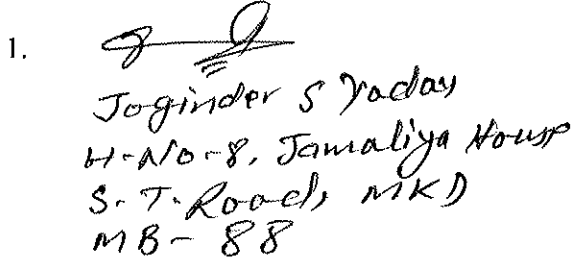 1.
Joginder S Yadav
H-No-8, Jamaliya House
S. T. Road, MKD
MB - 88